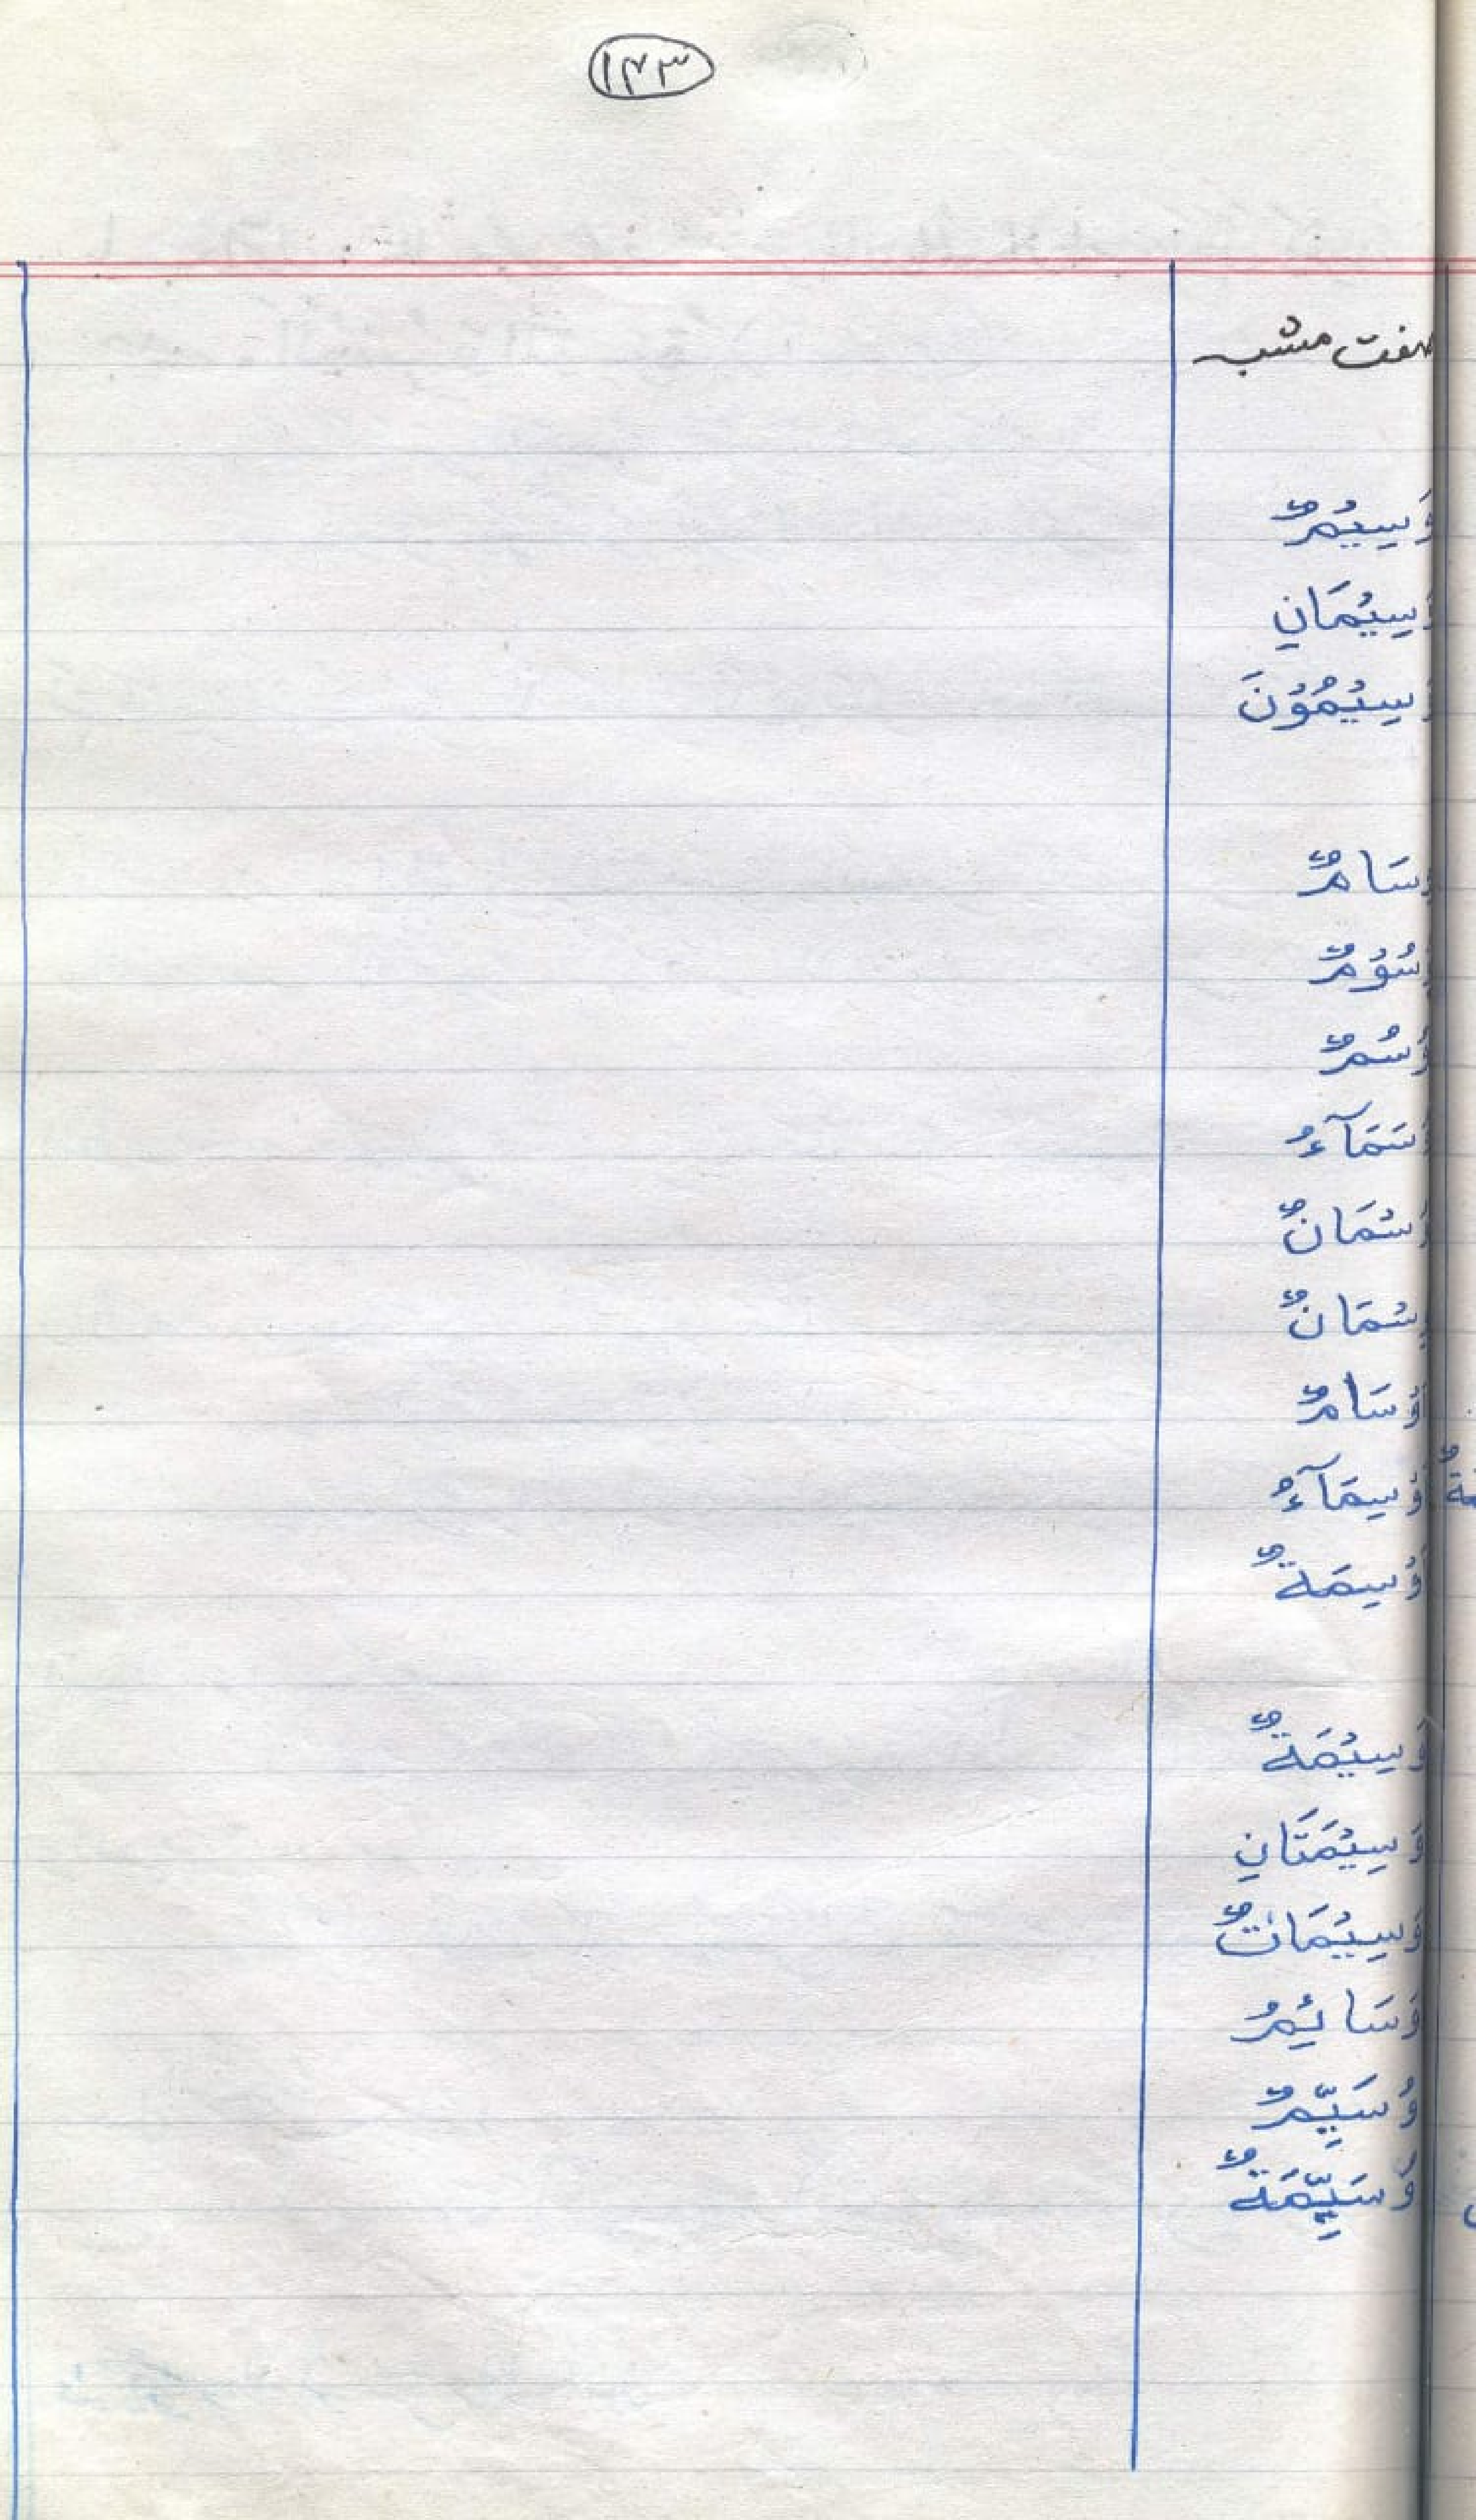 ۱۴۳
صفت مشبہ
وَسِيْمٌ
وَسِيْمَانِ
وَسِيْمُوْنَ
وِسَامٌ
وُسُوْمٌ
وُسُمٌ
وُسَمَآءُ
وُسْمَانٌ
وِسْمَانٌ
اَوْسَامٌ
اَوْسِمَآءُ
اَوْسِمَةٌ
وَسِيْمَةٌ
وَسِيْمَتَانِ
وَسِيْمَاتٌ
وَسَائِمُ
وُسَيِّمٌ
وُسَيِّمَةٌ